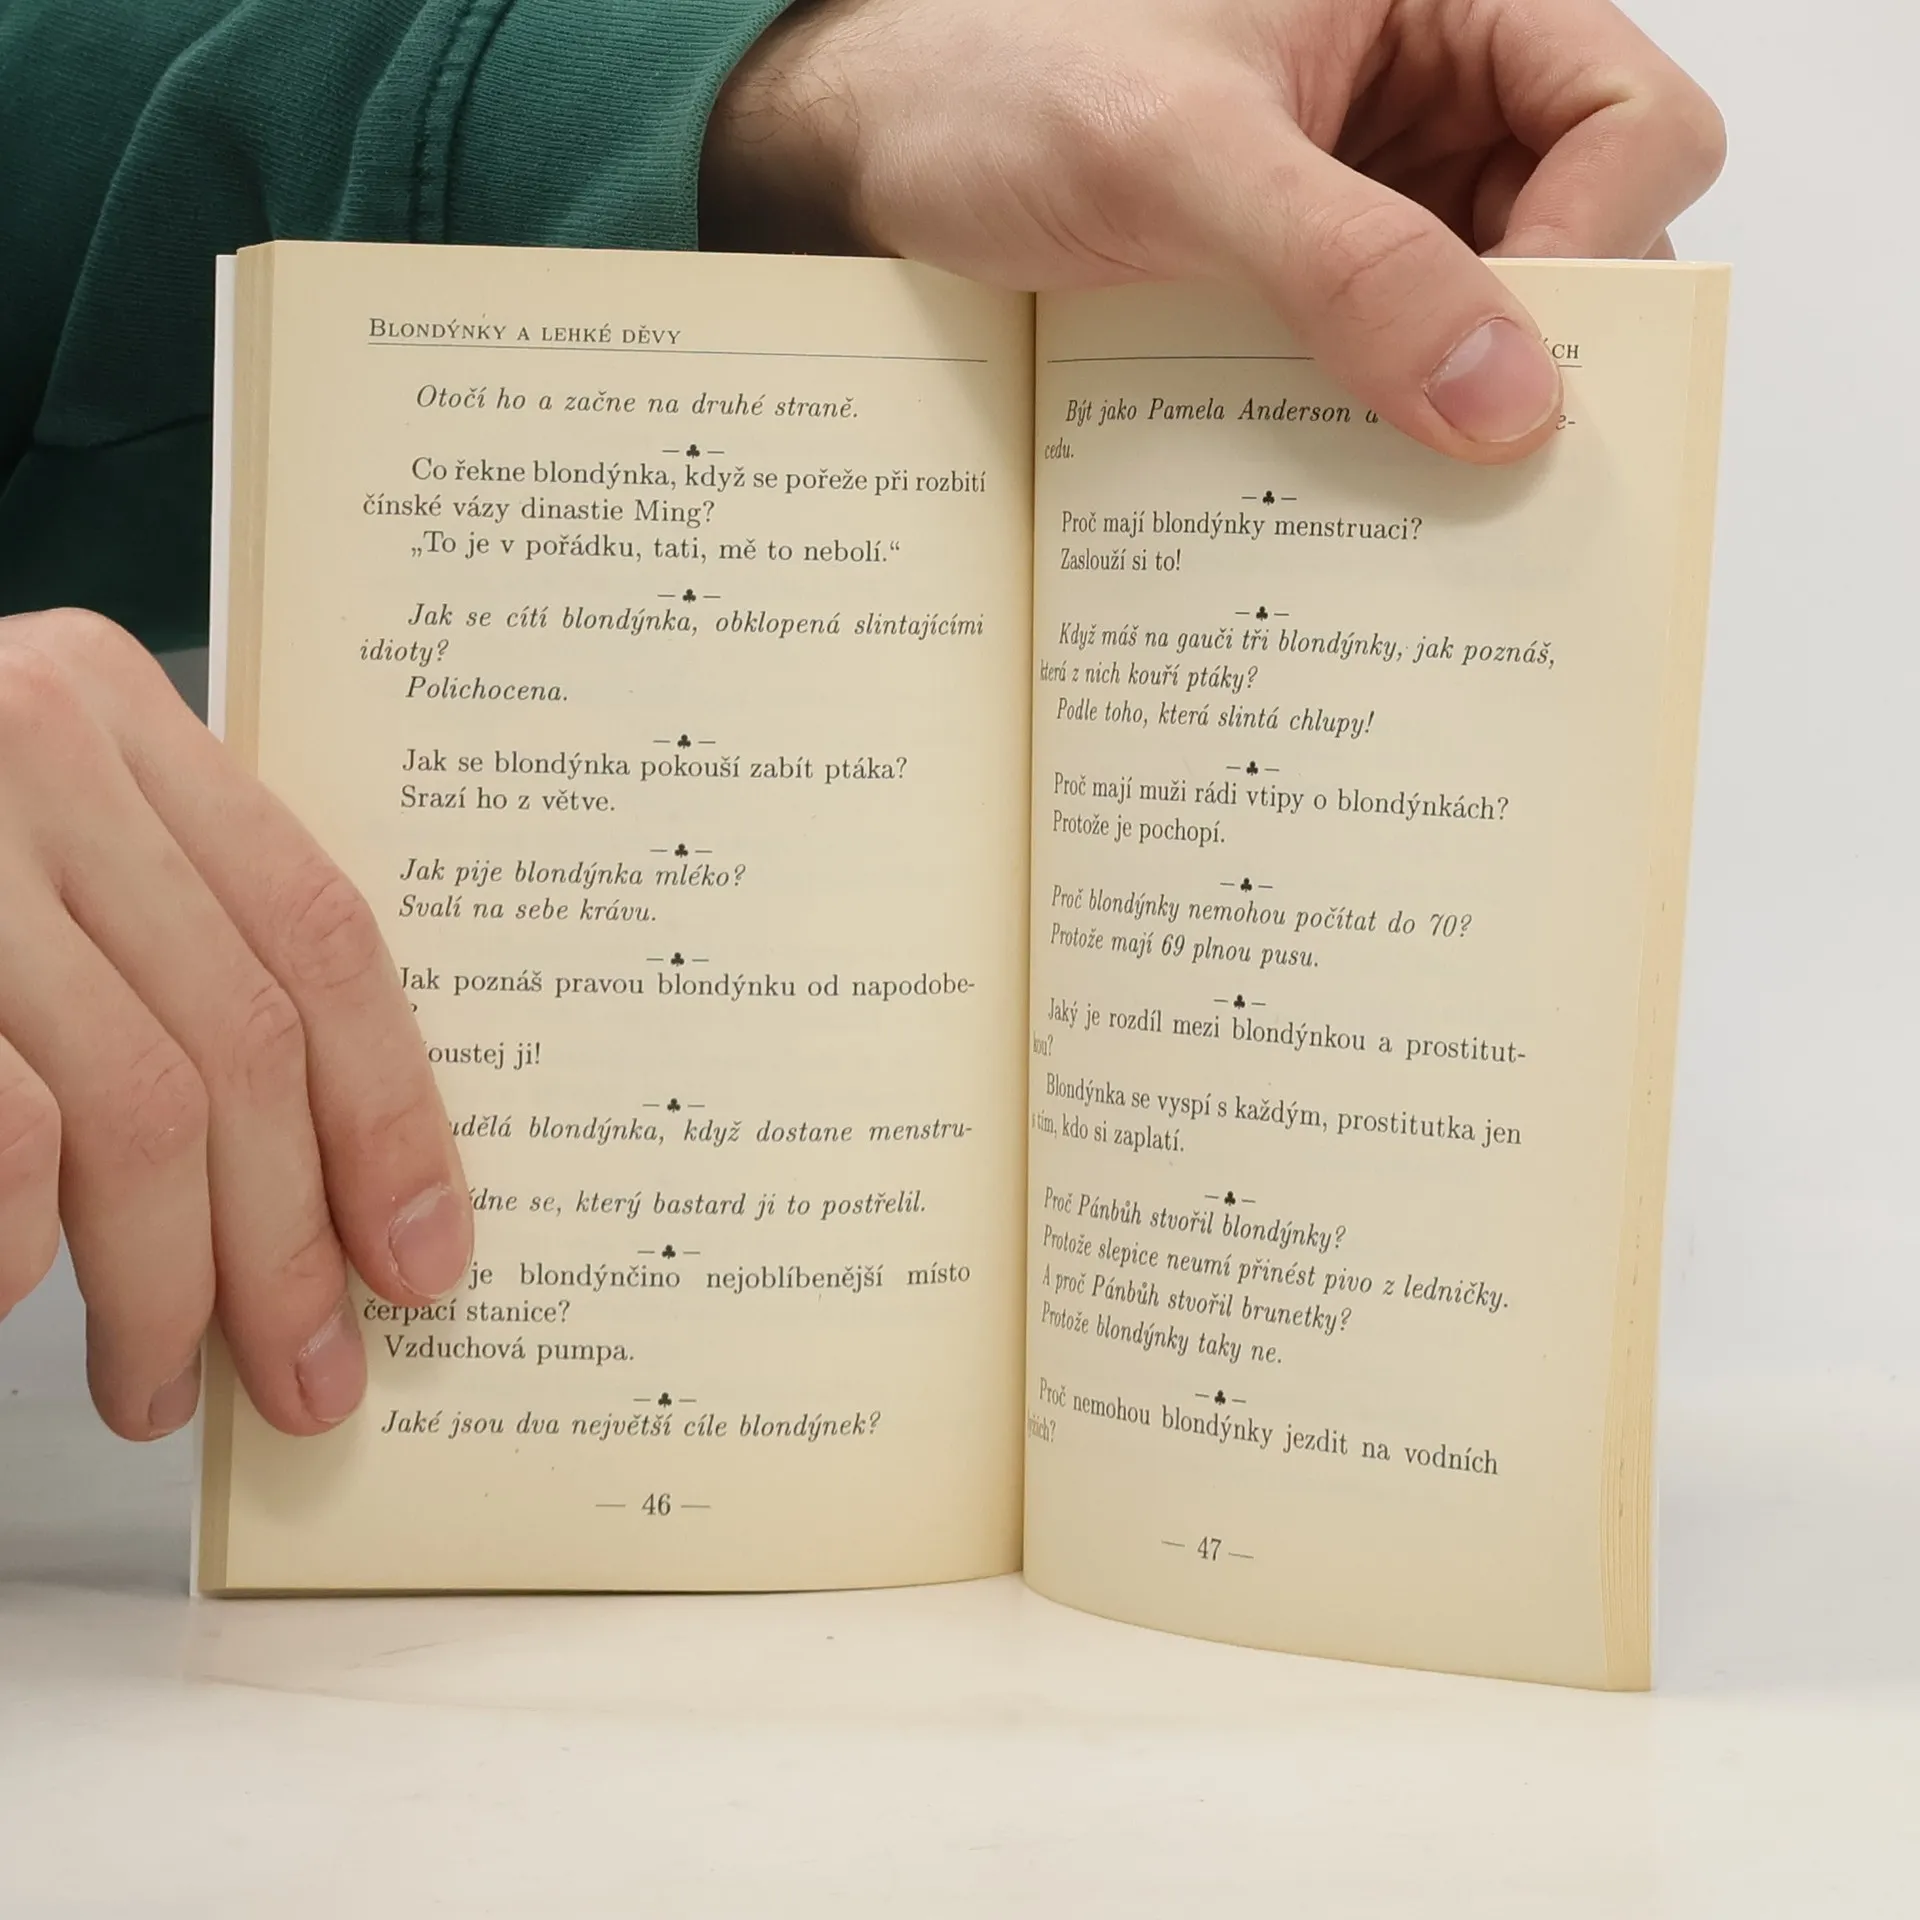 Blondýnky a lehké děvy
Otočí ho a začne na druhé straně.
— ♣ —
Co řekne blondýnka, když se pořeže při rozbití
čínské vázy dinastie Ming?
„To je v pořádku, tati, mě to nebolí.“
— ♣ —
Jak se cítí blondýnka, obklopená slintajícími
idioty?
Polichocena.
— ♣ —
Jak se blondýnka pokouší zabít ptáka?
Srazí ho z větve.
— ♣ —
Jak pije blondýnka mléko?
Svalí na sebe krávu.
— ♣ —
Jak poznáš pravou blondýnku od napodobe-
?
oustej ji!
— ♣ —
udělá blondýnka, když dostane menstru-
ídne se, který bastard ji to postřelil.
— ♣ —
je blondýnčino nejoblíbenější místo
čerpací stanice?
Vzduchová pumpa.
— ♣ —
Jaké jsou dva největší cíle blondýnek?
— 46 —
ÁCH
Být jako Pamela Anderson a e-
cedu.
— ♣ —
Proč mají blondýnky menstruaci?
Zaslouží si to!
— ♣ —
Když máš na gauči tři blondýnky, jak poznáš,
která z nich kouří ptáky?
Podle toho, která slintá chlupy!
— ♣ —
Proč mají muži rádi vtipy o blondýnkách?
Protože je pochopí.
— ♣ —
Proč blondýnky nemohou počítat do 70?
Protože mají 69 plnou pusu.
— ♣ —
Jaký je rozdíl mezi blondýnkou a prostitut-
kou?
Blondýnka se vyspí s každým, prostitutka jen
s tím, kdo si zaplatí.
— ♣ —
Proč Pánbůh stvořil blondýnky?
Protože slepice neumí přinést pivo z ledničky.
A proč Pánbůh stvořil brunetky?
Protože blondýnky taky ne.
— ♣ —
Proč nemohou blondýnky jezdit na vodních
— 47 —